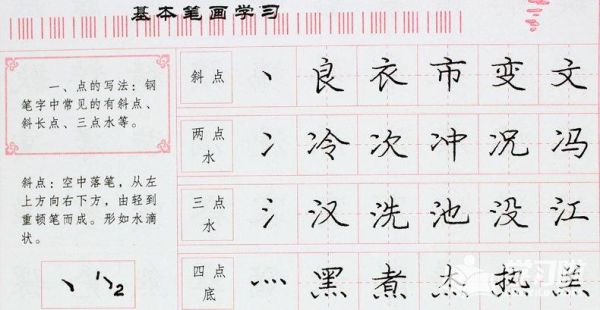 基本笔画学习
一、点的写法：钢
笔字中常见的有斜点、
斜长点、三点水等。
斜点：空中落笔，从左
上方向右下方，由轻到
重顿笔而成。形如水滴
状。
丶 1 2
斜点 丶 良 衣 市 变 文
两点水 冫 冷 次 冲 况 冯
三点水 氵 汉 洗 池 没 江
四点底 灬 黑 煮 杰 热 羔
学习啦